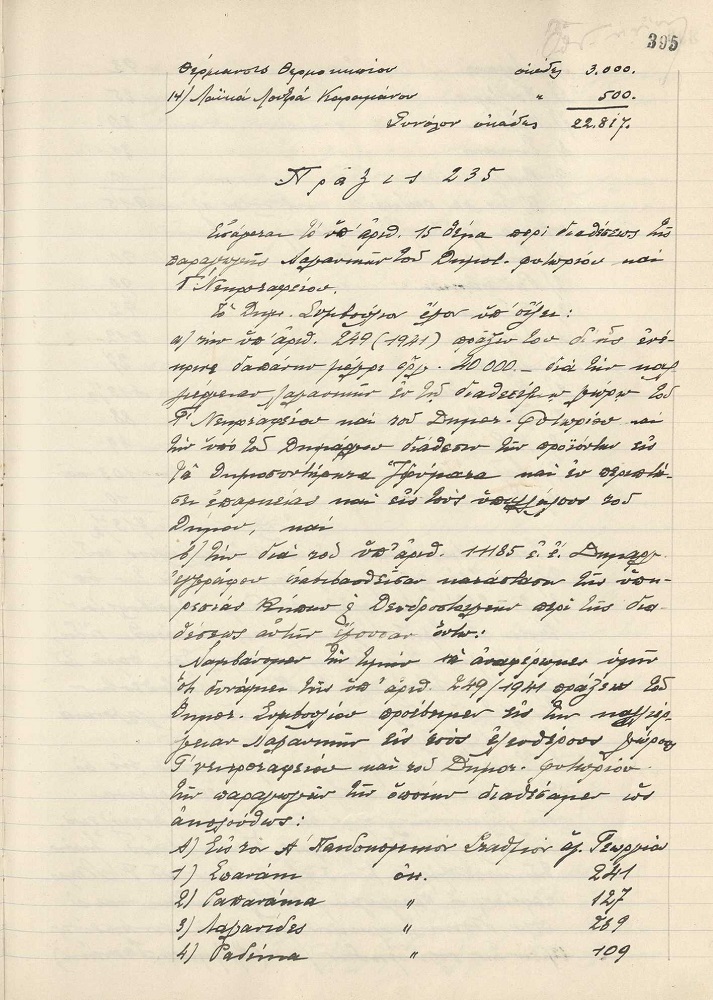 395
θέρμανσιν θερμοκηπίου ὀκάδες 3.000.
14) Λαϊκά Λουτρά Καραμάνου " 500.
Σύνολον ὀκάδες 22.817.
Πρᾶξις 235
Εἰσάγεται τὸ ὑπ' ἀριθ. 15 θέμα περὶ διαθέσεως τῆς
παραγωγῆς λαχανικῶν τοῦ Δημοτ. φυτωρίου καὶ
Γ' Νεκροταφείου.
Τὸ Δημ. Συμβούλιον ἔχον ὑπ' ὄψει:
α) τὴν ὑπ' ἀριθ. 249 (1941) πρᾶξίν του δι' ἧς ἐνέ-
κρινε δαπάνην μέχρι δρχ. 20000.- διὰ τὴν καλ
λιέργειαν λαχανικῶν ἐν τῷ διαθεσίμῳ χώρῳ τοῦ
Γ' Νεκροταφείου καὶ τοῦ Δημοτ. Φυτωρίου καὶ
τὴν ὑπὸ τοῦ Δημάρχου διάθεσιν τῶν προϊόντων εἰς
τὰ δημοσυντήρητα Ἱδρύματα καὶ ἐν περιπτώ-
σει ἐπαρκείας καὶ εἰς τοὺς ὑπαλλήλους τοῦ
Δήμου, καὶ
β) τὴν διὰ τοῦ ὑπ' ἀριθ. 14185 ἐ. ἔ. Δημαρχ.
ἐγγράφου διαβιβασθεῖσαν κατάστασιν τῆς ὑπη-
ρεσίας Κήπων & Δενδροστοιχιῶν περὶ τῆς δια-
θέσεως αὐτῶν ἔχουσαν οὕτω:
Λαμβάνομεν τὴν τιμὴν νὰ ἀναφέρωμεν ὑμῖν
ὅτι δυνάμει τῆς ὑπ' ἀριθ. 249/1941 πράξεως τοῦ
Δημοτ. Συμβουλίου προέβημεν εἰς τὴν καλλιέρ-
γειαν λαχανικῶν εἰς τοὺς ἐλευθέρους χώρους
Γ' νεκροταφείου καὶ τοῦ Δημοτ. φυτωρίου.
τὴν παραγωγὴν τῶν ὁποίων διαθέσαμεν ὡς
ἀκολούθως:
Α) Εἰς τὸν Α' Παιδοκομικὸν Σταθμὸν ἁγ. Γεωργίου
1) Σπανάκι ὀκ. 241
2) Ραπανάκια " 127
3) Λαχανίδες " 269
4) Ραδίκια " 109